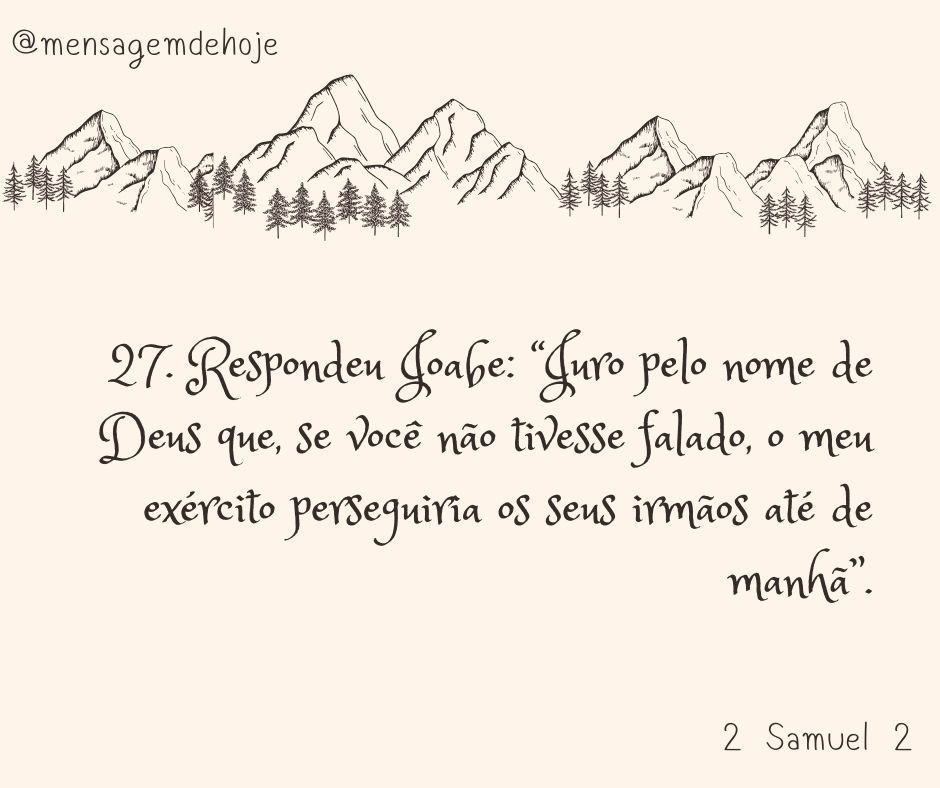 @mensagemdehoje
27. Respondeu Joabe: “Juro pelo nome de
Deus que, se você não tivesse falado, o meu
exército perseguiria os seus irmãos até de
manhã”.
2 Samuel 2